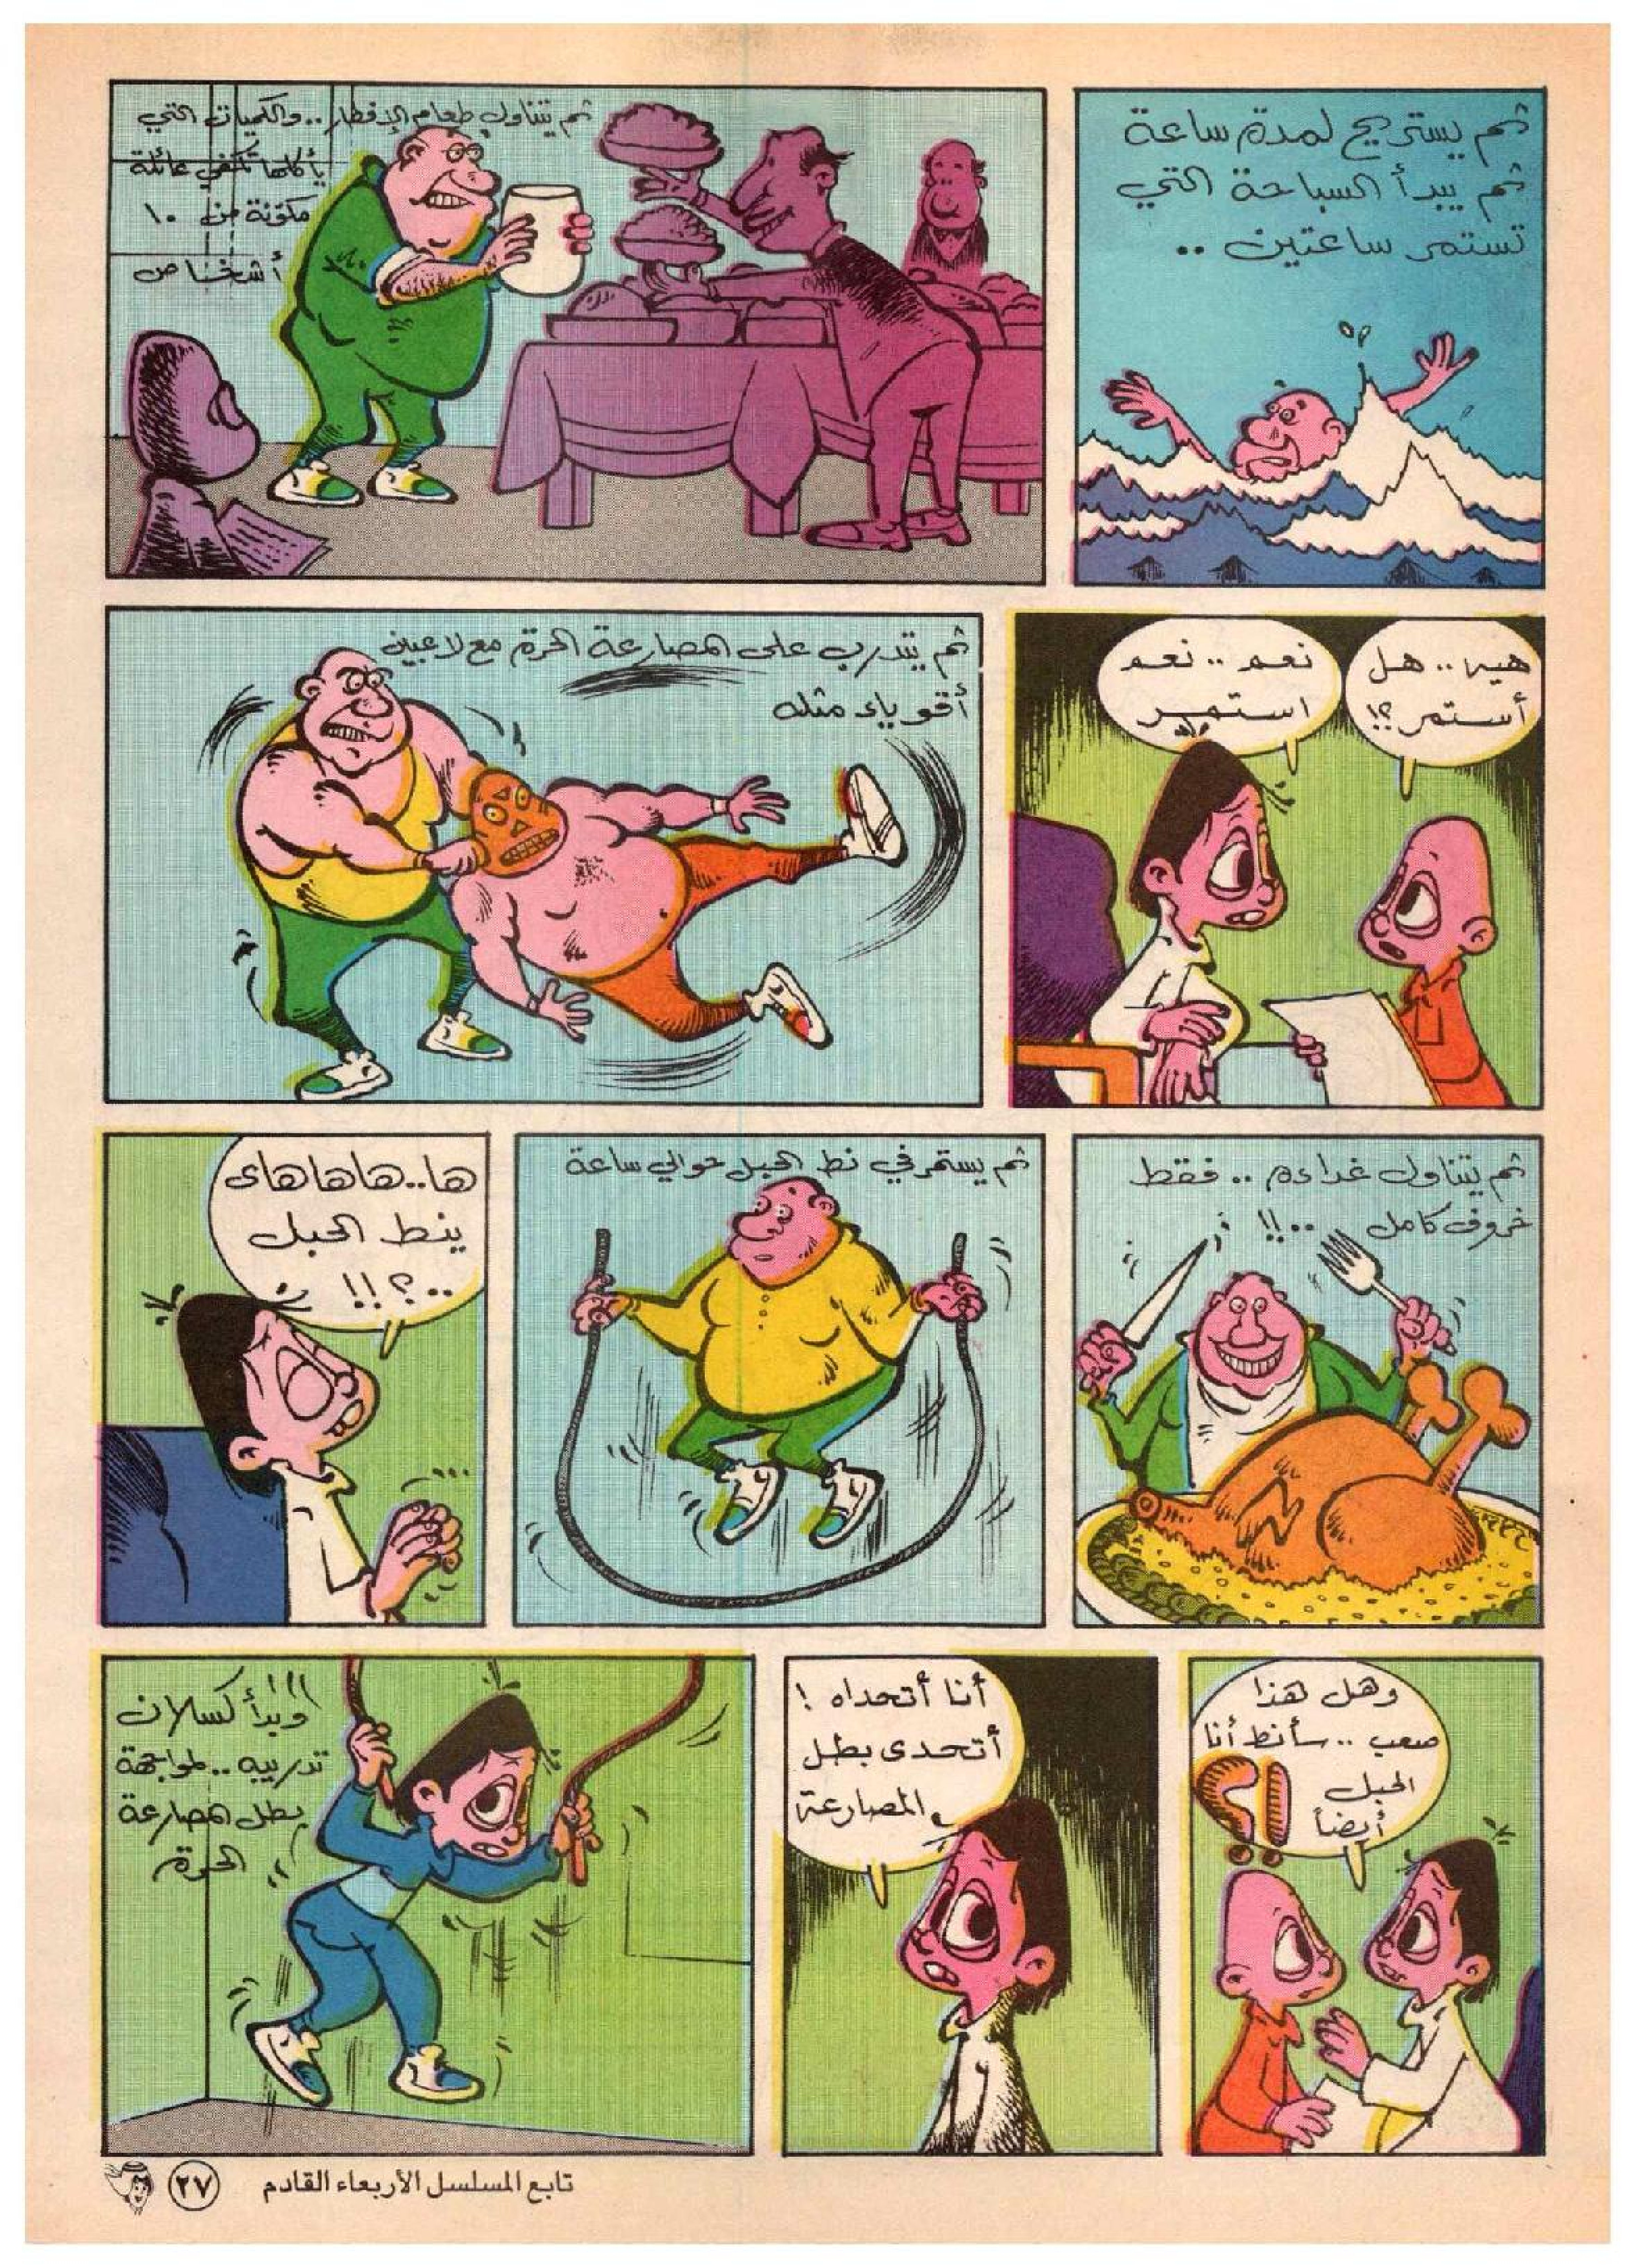 ثم يستريح لمدة ساعة
ثم يبدأ السباحة التي
تستمر ساعتين ..
ثم يتناول طعام الإفطار .. والكميات التي
يأكلها تكفي عائلة
مكوّنة من ١٠
أشخاص
هيه .. هل
أستمر ؟!
نعم .. نعم
استمر
ثم يتدرب على المصارعة الحرة مع لاعبين
أقوياء مثله
ثم يتناول غداءه .. فقط
خروف كامل ..!!
ثم يستمر في نط الحبل حوالي ساعة
ها..هاهاهاى
ينط الحبل
..؟!!
وهل هذا
صعب .. سأنط أنا
الحبل
أيضاً
؟!
أنا أتحداه !
أتحدى بطل
المصارعة
وبدأ كسلان
تدريبه .. لمواجهة
بطل المصارعة
الحرة !!
تابع المسلسل الأربعاء القادم
٢٧